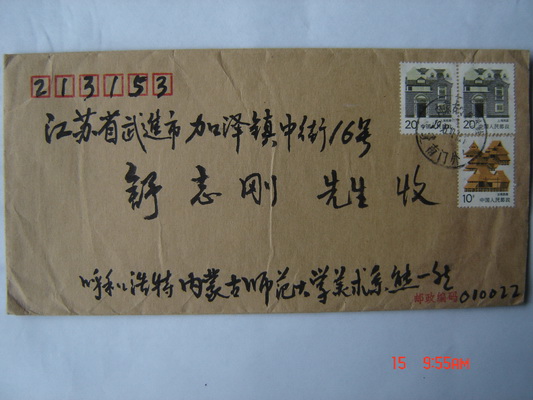 213153
20分 中国人民邮政
20分 中国人民邮政
江苏省武进市加泽镇中街16号
10分 中国人民邮政
舒志刚 先生 收
呼和浩特内蒙古师范大学美术系 熊一
邮政编码 010022
15 9:55AM